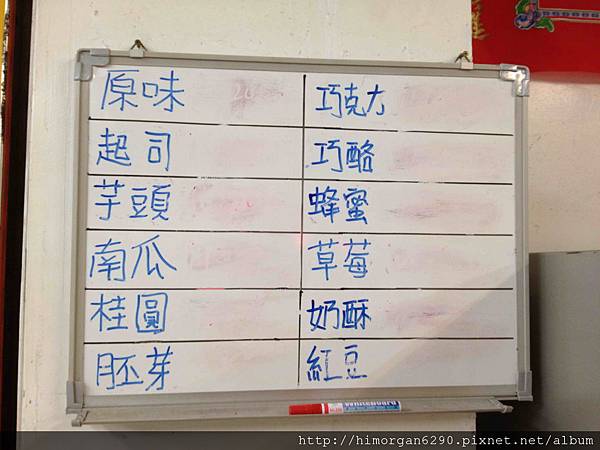 原味 巧克力
起司 巧酪
芋頭 蜂蜜
南瓜 草莓
桂圓 奶酥
胚芽 紅豆
WhiteBoard
http://himorgan6290.pixnet.net/album